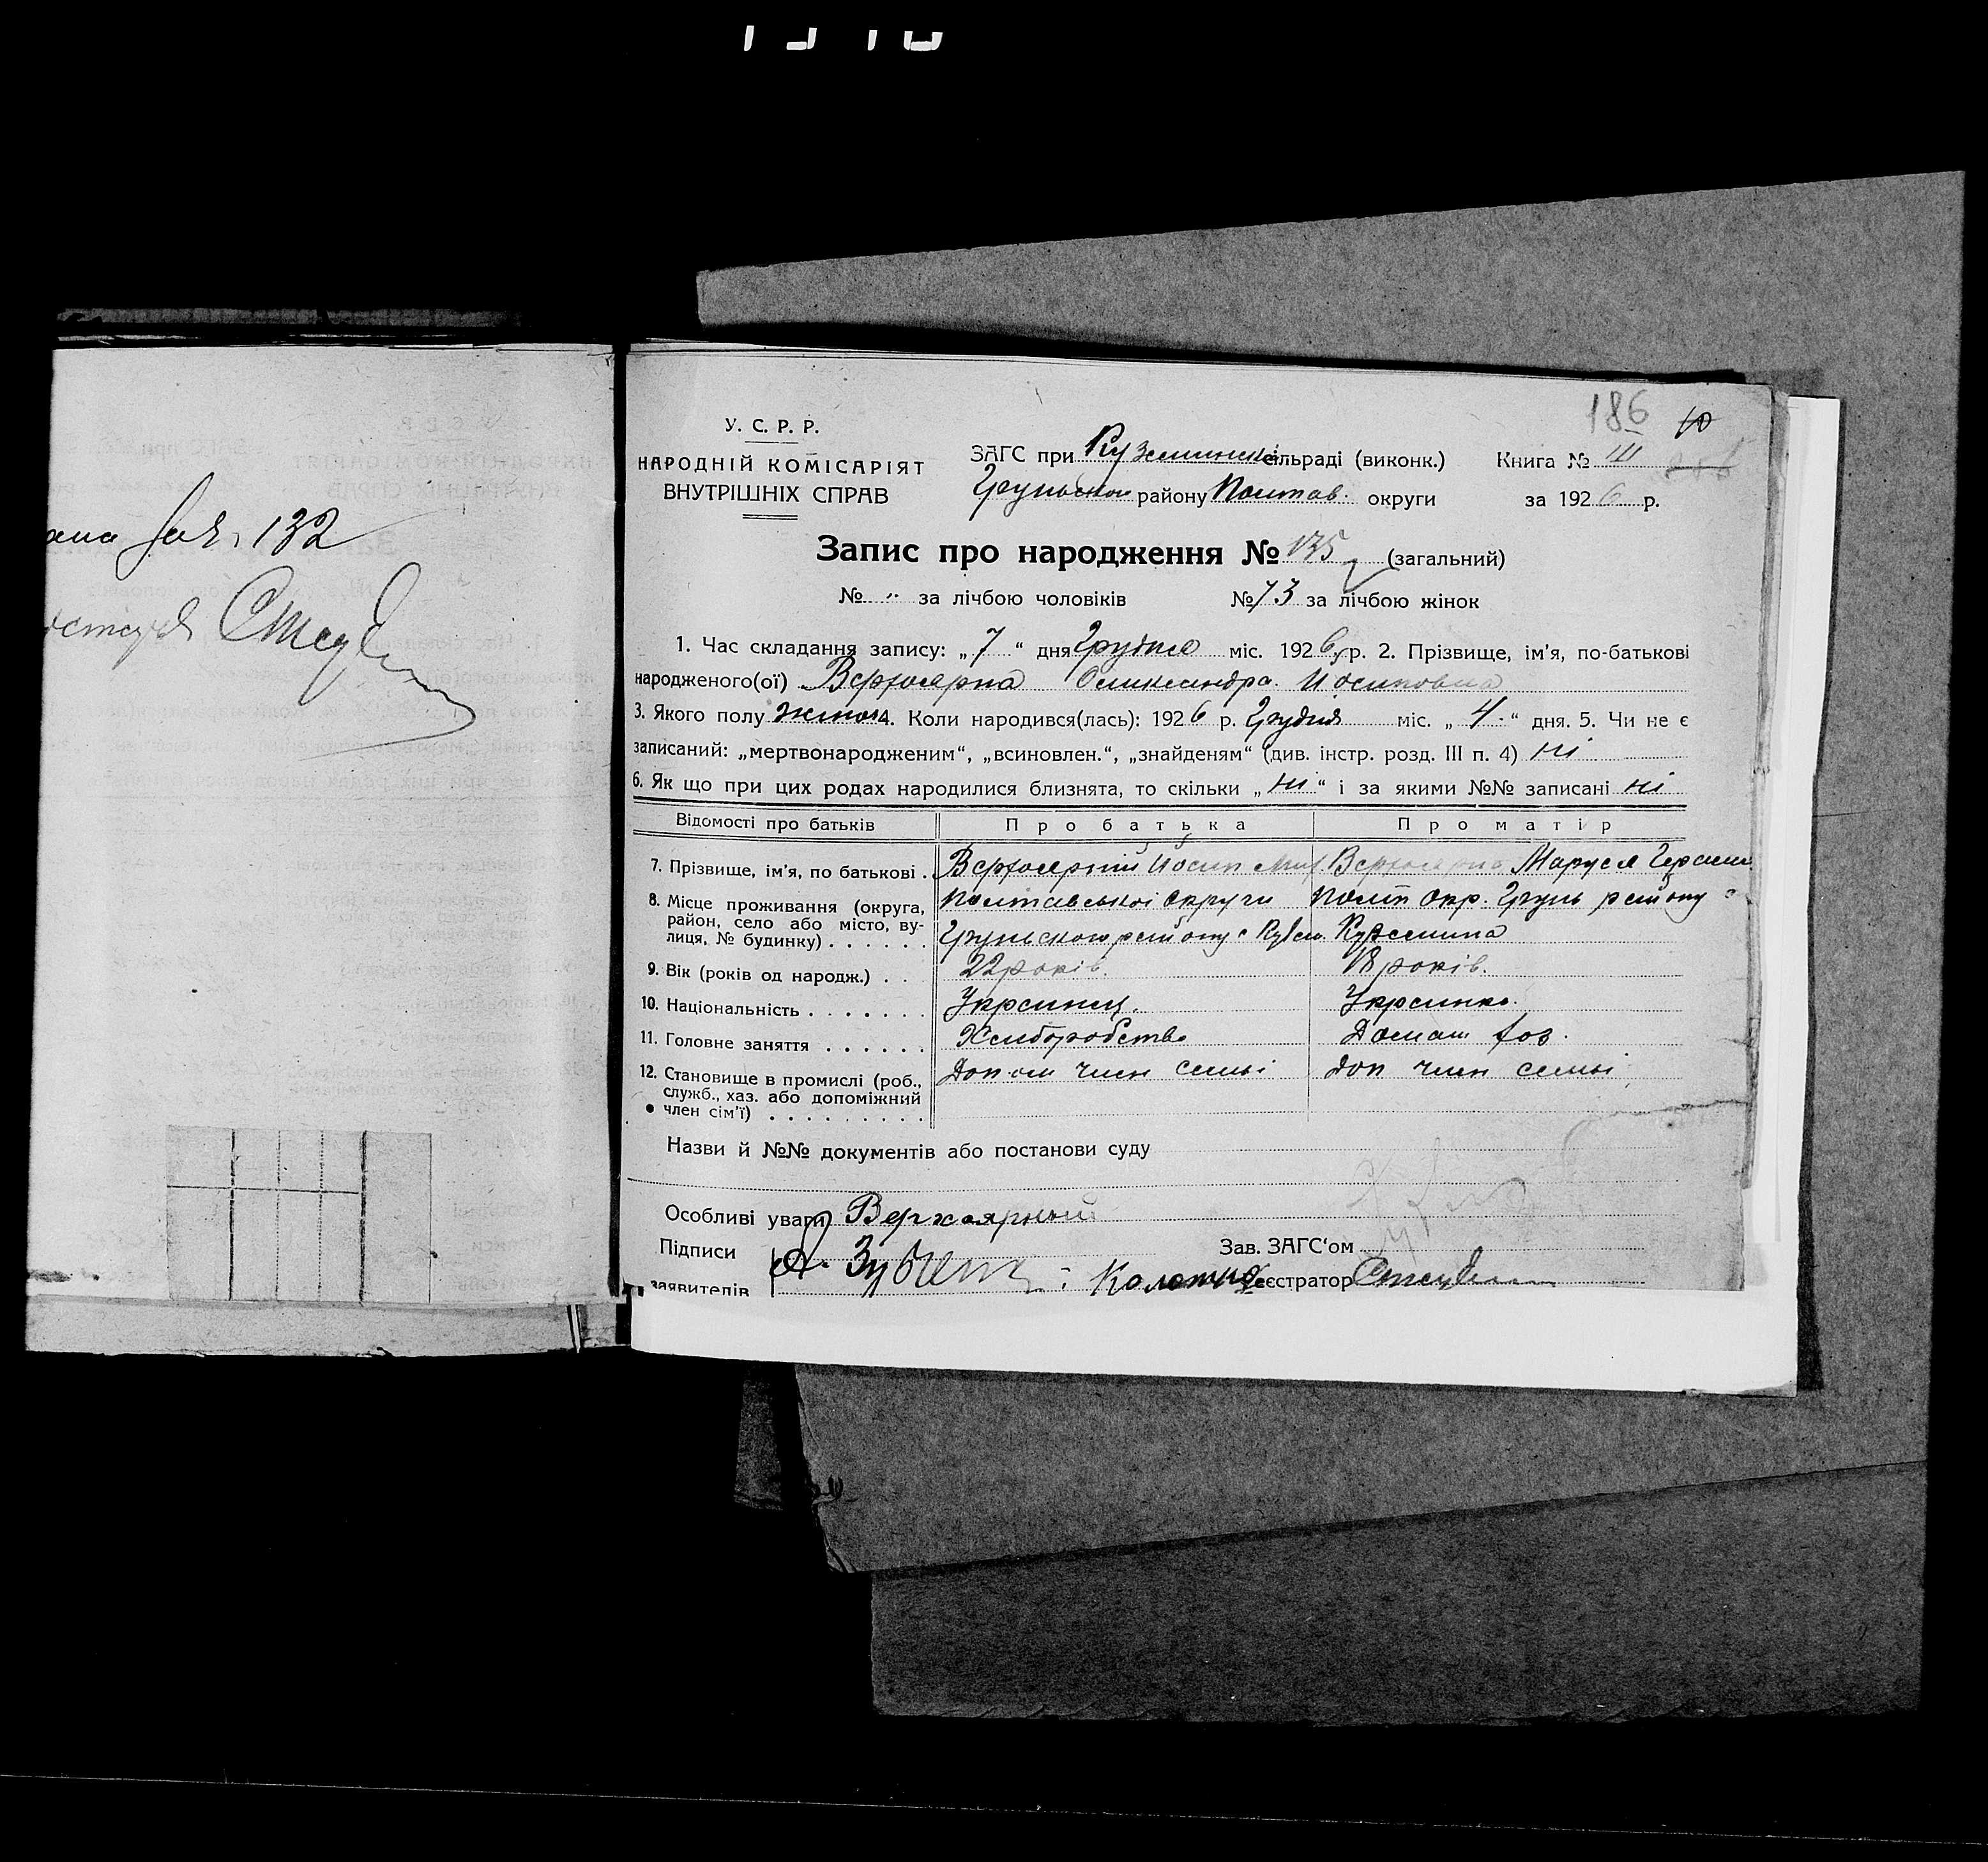 132
186
У. С. Р. Р.
НАРОДНІЙ КОМІСАРІЯТ
ВНУТРІШНІХ СПРАВ
ЗАГС при Кузьминській сільраді (виконк.) Книга № III
Грунського району Полтав. округи за 1926 р.
Запис про народження № 135 (загальний)
№ " за лічбою чоловіків № 73 за лічбою жінок
1. Час складання запису: „ 7 “ дня Грудня міс. 1926 р. 2. Прізвище, ім'я, по-батькові
народженого(ої) Верхоярна Олександра Иосиповна
3. Якого полу жіноч. 4. Коли народився(лась): 1926 р. Грудня міс. „ 4 “ дня. 5. Чи не є
записаний: „мертвонародженим“, „всиновлен.“, „знайденям“ (див. інстр. розд. III п. 4) ні
6. Як що при цих родах народилися близнята, то скільки „ ні “ і за якими №№ записані ні
Відомості про батьків Про батька Про матір
7. Прізвище, ім'я, по батькові . Верхоярний Йосип Верхоярна Маруся Герасим.
8. Місце проживання (округа, район, село або місто, вулиця, № будинку) . . . . . . Полтавської округи Полт окр. Грунь району с
Грунського району с Кузем. Куземина
9. Вік (років од народж.) . . 22 років. 18 років.
10. Національність . . . . . . . Українец. Українка.
11. Головне заняття . . . . . . Хліборобство Домаш хоз.
12. Становище в промислі (роб., служб., хаз. або допоміжний член сім'ї) . . . . . . . . . Допом член семьї Доп член семьї
Назви й №№ документів або постанови суду
Особливі уваги Верхоярный
Підписи Зав. ЗАГС‘ом
заявителів Реєстратор